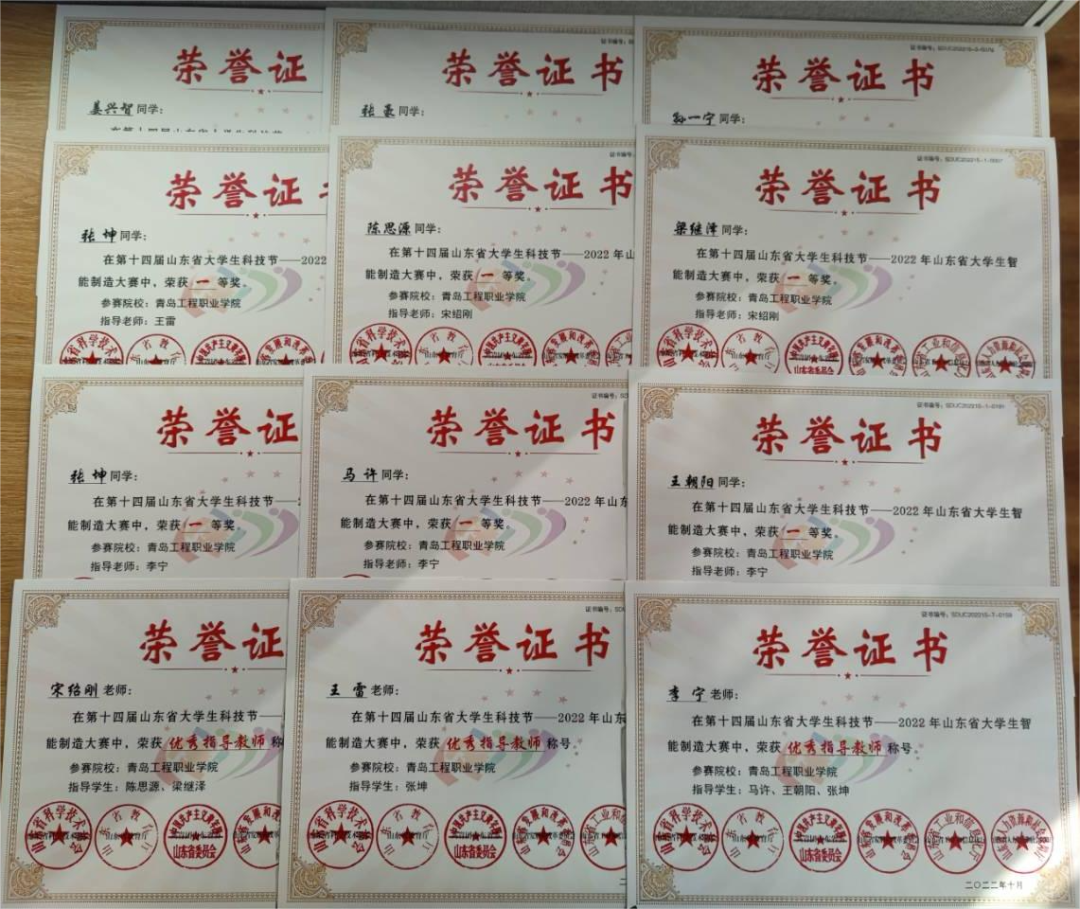 荣誉证
姜兴智 同学:
荣誉证书
张豪 同学:
荣誉证书
孙一宁 同学:
荣誉证
张坤 同学:
在第十四届山东省大学生科技节——2022
能制造大赛中,荣获 一 等奖。
参赛院校:青岛工程职业学院
指导老师:王雷
荣誉证书
陈思源 同学:
在第十四届山东省大学生科技节——2022年山
能制造大赛中,荣获 一 等奖。
参赛院校:青岛工程职业学院
指导老师:宋绍刚
荣誉证书
梁继泽 同学:
在第十四届山东省大学生科技节——2022年山东省大学生智
能制造大赛中,荣获 一 等奖。
参赛院校:青岛工程职业学院
指导老师:宋绍刚
荣誉证
张坤 同学:
在第十四届山东省大学生科技节——2
能制造大赛中,荣获 一 等奖。
参赛院校:青岛工程职业学院
指导老师:李宁
荣誉证书
马许 同学:
在第十四届山东省大学生科技节——2022年山东
能制造大赛中,荣获 一 等奖。
参赛院校:青岛工程职业学院
指导老师:李宁
荣誉证书
王朝阳 同学:
在第十四届山东省大学生科技节——2022年山东省大学生智
能制造大赛中,荣获 一 等奖。
参赛院校:青岛工程职业学院
指导老师:李宁
荣誉证
宋绍刚 老师:
在第十四届山东省大学生科技节——
能制造大赛中,荣获 优秀指导教师 称
参赛院校:青岛工程职业学院
指导学生:陈思源、梁继泽
荣誉证书
王雷 老师:
在第十四届山东省大学生科技节——2022年山东
能制造大赛中,荣获 优秀指导教师 称号。
参赛院校:青岛工程职业学院
指导学生:张坤
荣誉证书
李宁 老师:
在第十四届山东省大学生科技节——2022年山东省大学生智
能制造大赛中,荣获 优秀指导教师 称号。
参赛院校:青岛工程职业学院
指导学生:马许、王朝阳、张坤
二〇二二年十月